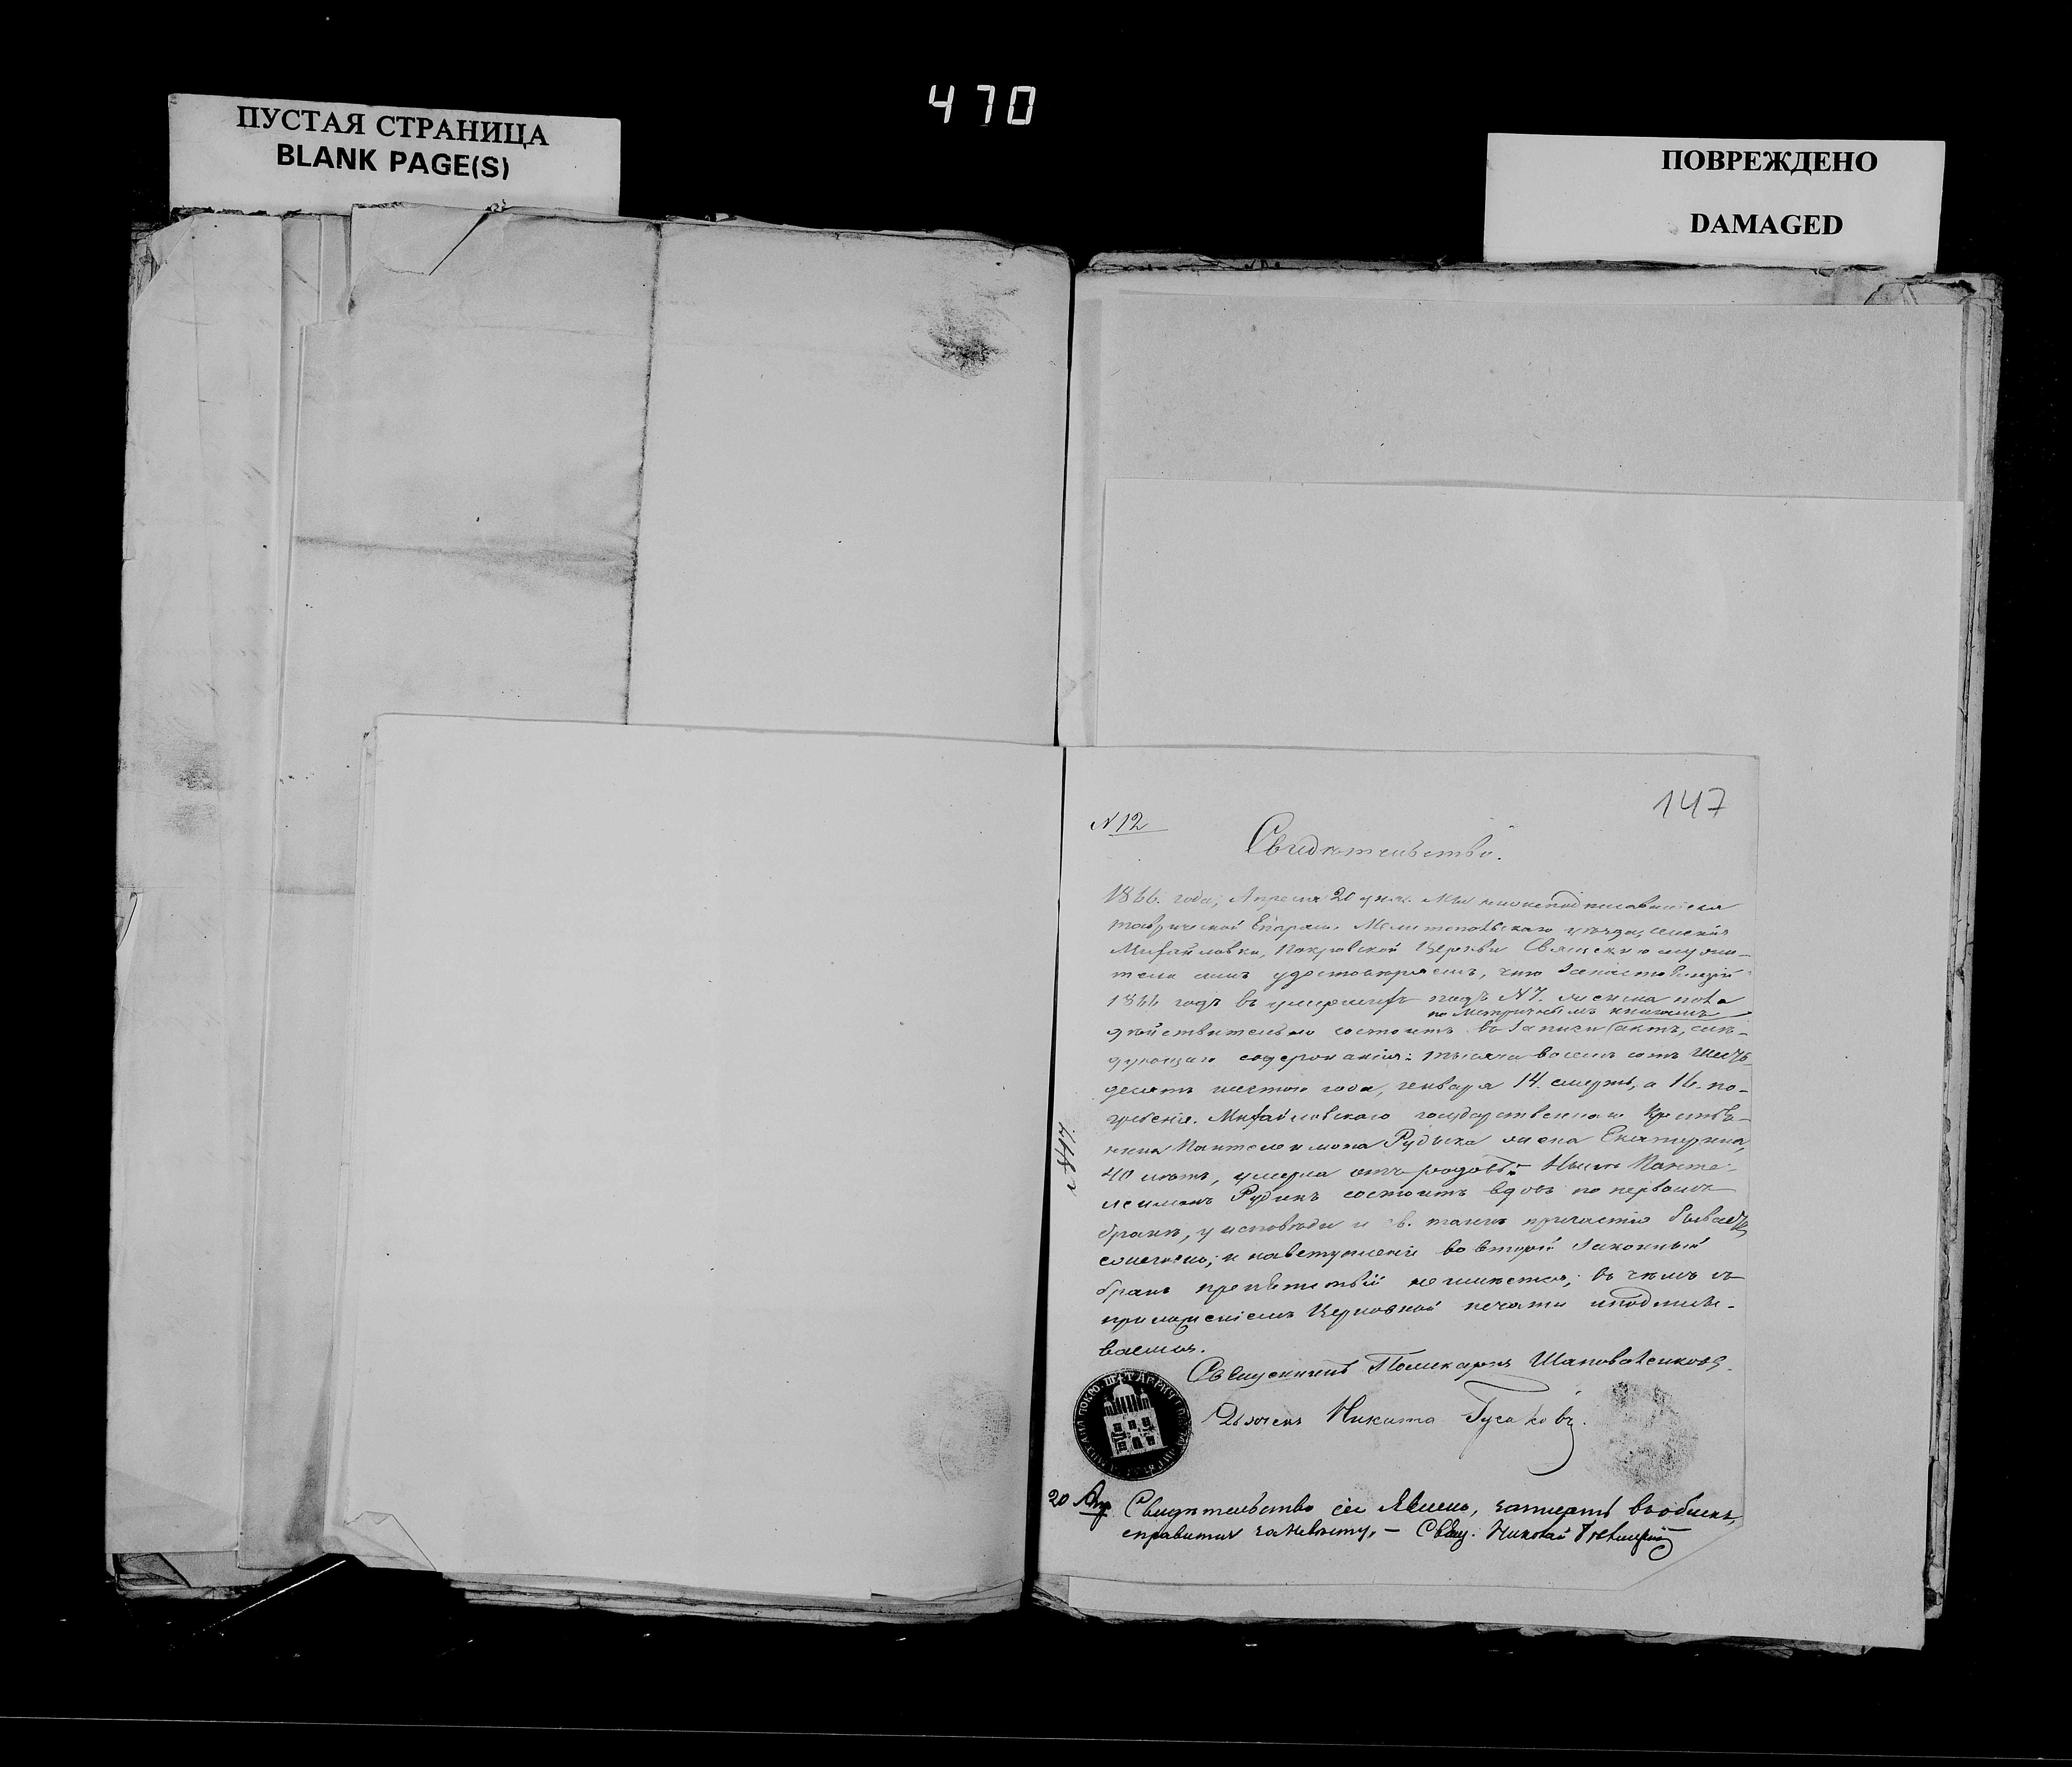 470
ПУСТАЯ СТРАНИЦА
BLANK PAGE(S)
ПОВРЕЖДЕНО
DAMAGED
147
№ 12
Свидѣтельство.
1866. года, Апреля 20 дня. Мы нижеподписавшіеся
Таврической Епархіи, Мелитопольскаго уѣзда, селенія
Михайловки, Покровской Церкви Священно служи-
тели симъ удостоверяемъ, что
1866 годъ въ умершихъ подъ № 7. женска пола
по метричнымъ книгамъ
дѣйствительно состоитъ въ записи актъ, слѣ-
дующаго содержанія: тысяча восемь сотъ шесть
десятъ шестого года, генваря 14. смерть, а 16. по-
гребенія. Михайловскаго государственнаго крестья-
нина Пантелеимона Рудыка жена Екатерина,
40 лѣтъ, умерла отъ родовъ. Нынѣ Панте-
леимонъ Рудыкъ состоитъ вдовъ по первомъ
бракѣ, у исповѣди и св. таинъ причастія бываетъ
и на вступленіе во второй законный
бракъ препятствій не имѣется; въ чемъ съ
приложеніемъ Церковной печати и подписы-
ваемся.
Священникъ Поликарпъ Шаповаленковъ
Дьячекъ Никита Гусаковъ.
20 Апр. Свидѣтельство сіе явлено, въ обыскъ,
справиться за невѣсту, — Свящ. Николай